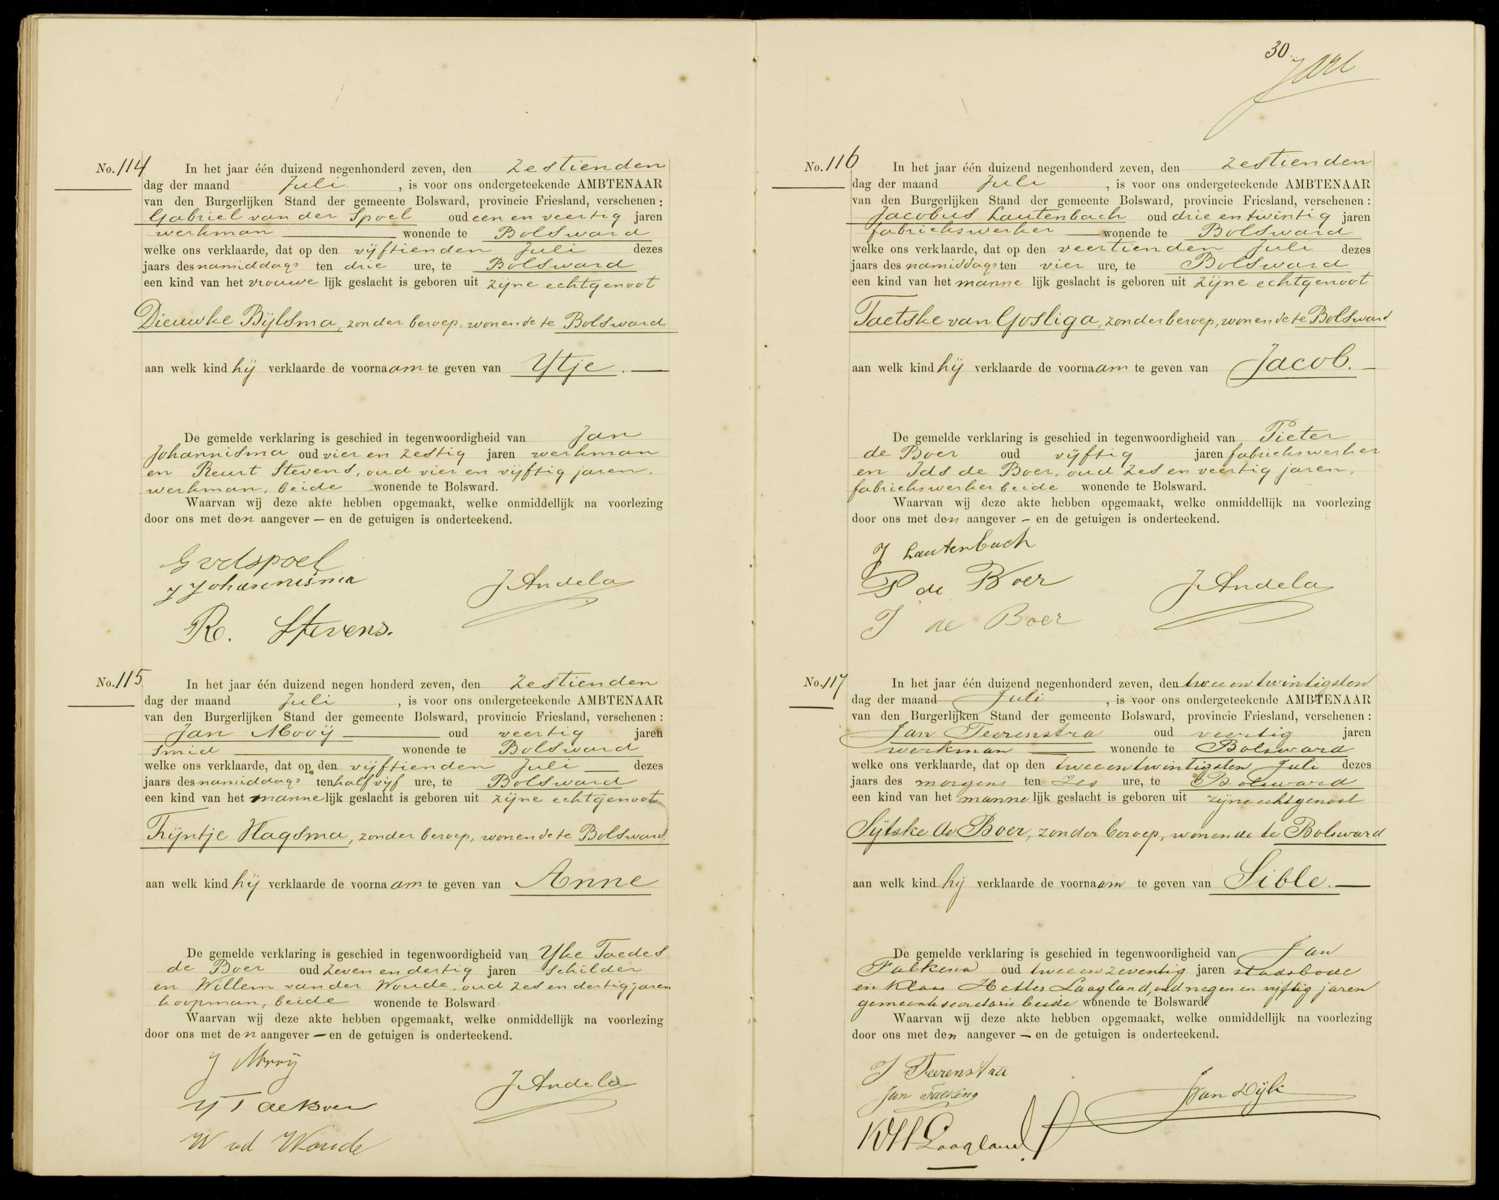 No. 114
In het jaar één duizend negenhonderd zeven, den zestienden
dag der maand Juli , is voor ons ondergeteekende AMBTENAAR
van den Burgerlijken Stand der gemeente Bolsward, provincie Friesland, verschenen:
Gabriel van der Spoel oud een en veertig jaren
werkman wonende te Bolsward
welke ons verklaarde, dat op den vijftienden Juli dezes
jaars des namiddags ten drie ure, te Bolsward
een kind van het vrouwe lijk geslacht is geboren uit zijne echtgenoot
Dieuwke Bijlsma, zonder beroep, wonende te Bolsward
aan welk kind hij verklaarde de voornaam te geven van Ytje.
De gemelde verklaring is geschied in tegenwoordigheid van Jan
Johannisma oud vier en zestig jaren werkman
en Reurt Stevens, oud vier en vijftig jaren,
werkman, beide wonende te Bolsward.
Waarvan wij deze akte hebben opgemaakt, welke onmiddellijk na voorlezing
door ons met den aangever — en de getuigen is onderteekend.
G vd Spoel
J Johannisma
J Andela
R. Stevens.
No. 115
In het jaar één duizend negen honderd zeven, den zestienden
dag der maand Juli , is voor ons ondergeteekende AMBTENAAR
van den Burgerlijken Stand der gemeente Bolsward, provincie Friesland, verschenen:
Jan Mooij oud veertig jaren
smid wonende te Bolsward
welke ons verklaarde, dat op den vijftienden Juli dezes
jaars des namiddags ten half vijf ure, te Bolsward
een kind van het manne lijk geslacht is geboren uit zijne echtgenoot
Trijntje Haqsma, zonder beroep, wonende te Bolsward
aan welk kind hij verklaarde de voornaam te geven van Anne
De gemelde verklaring is geschied in tegenwoordigheid van Yke Taedes
de Boer oud zeven en dertig jaren schilder
en Willem van der Woude, oud zes en dertig jaren
koopman, beide wonende te Bolsward
Waarvan wij deze akte hebben opgemaakt, welke onmiddellijk na voorlezing
door ons met den aangever — en de getuigen is onderteekend.
J Mooij
J Andela
Y T de Boer
W vd Woude
30
No. 116
In het jaar één duizend negenhonderd zeven, den zestienden
dag der maand Juli , is voor ons ondergeteekende AMBTENAAR
van den Burgerlijken Stand der gemeente Bolsward, provincie Friesland, verschenen:
Jacobus Lautenbach oud drie en twintig jaren
fabriekswerker wonende te Bolsward
welke ons verklaarde, dat op den veertienden Juli dezes
jaars des namiddags ten vier ure, te Bolsward
een kind van het manne lijk geslacht is geboren uit zijne echtgenoot
Taetske van Gosliga, zonder beroep, wonende te Bolsward
aan welk kind hij verklaarde de voornaam te geven van Jacob.
De gemelde verklaring is geschied in tegenwoordigheid van Pieter
de Boer oud vijftig jaren fabriekswerker
en Ids de Boer, oud zes en veertig jaren,
fabriekswerker beide wonende te Bolsward.
Waarvan wij deze akte hebben opgemaakt, welke onmiddellijk na voorlezing
door ons met den aangever — en de getuigen is onderteekend.
J Lautenbach
P de Boer
J Andela
I de Boer
No. 117
In het jaar één duizend negenhonderd zeven, den twee en twintigsten
dag der maand Juli , is voor ons ondergeteekende AMBTENAAR
van den Burgerlijken Stand der gemeente Bolsward, provincie Friesland, verschenen:
Jan Feerenstra oud veertig jaren
werkman wonende te Bolsward
welke ons verklaarde, dat op den twee en twintigsten Juli dezes
jaars des morgens ten zes ure, te Bolsward
een kind van het manne lijk geslacht is geboren uit zijne echtgenoot
Sijtske de Boer, zonder beroep, wonende te Bolsward
aan welk kind hij verklaarde de voornaam te geven van Sible.
De gemelde verklaring is geschied in tegenwoordigheid van Jan
Falkena oud twee en zeventig jaren stadsbode
en Klaas Hettes Laagland, oud negen en vijftig jaren
gemeentesecretaris beide wonende te Bolsward.
Waarvan wij deze akte hebben opgemaakt, welke onmiddellijk na voorlezing
door ons met den aangever — en de getuigen is onderteekend.
J Feerenstra
Jan Falkena
van Dijk
KHLaagland